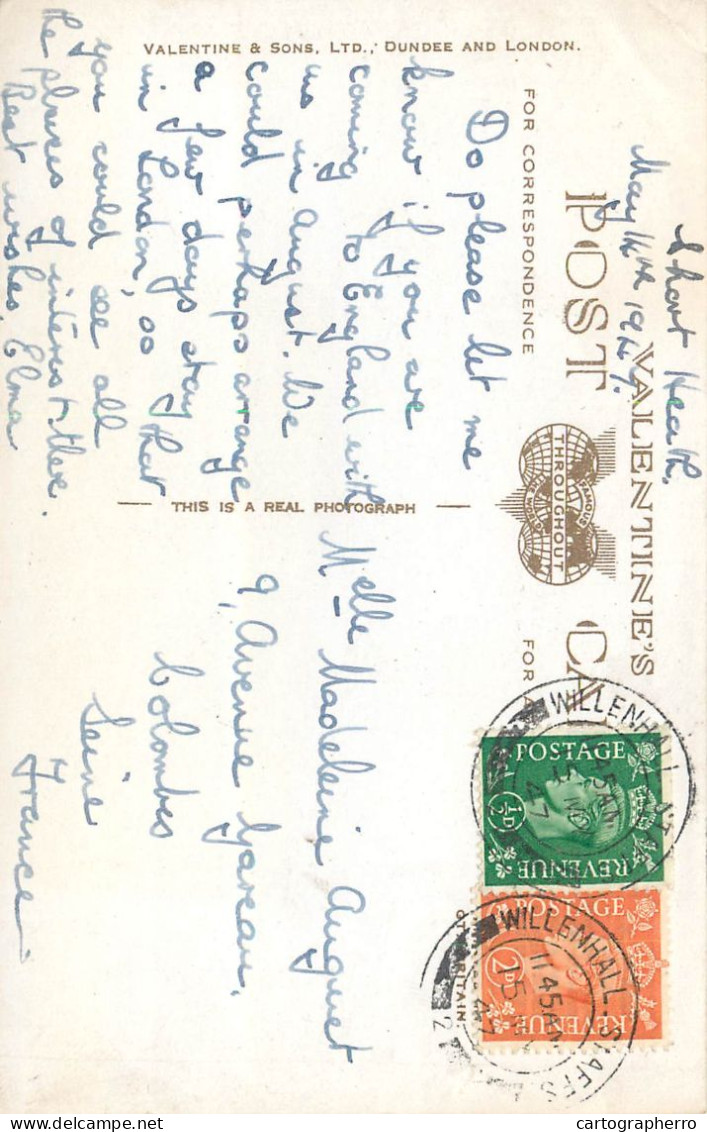 VALENTINE & SONS, LTD., DUNDEE AND LONDON.
VALENTINE'S
POST CA
FOR CORRESPONDENCE
FOR A
FAMOUS
THROUGHOUT
THE WORLD
THIS IS A REAL PHOTOGRAPH
Short Heath.
May 14th 1947.
Do please let me
know if you are
coming to England with
us in August. We
could perhaps arrange
a few days stay
in London, so that
you could see all
the places of interest there.
Best wishes, Elma
Melle Madeleine Auguet
9, Avenue Gareau,
Colombes
Seine
France
POSTAGE
½D
REVENUE
POSTAGE
2D
REVENUE
WILLENHALL
45AM
47
WILLENHALL STAFFS.
1145AM
15
47
2
BRITAIN
cartographerro